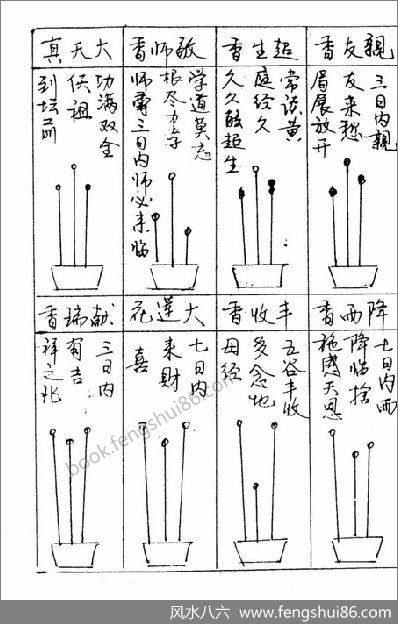 親友香
三日内親
友来愁
眉展放开
超生香
常诵黄
庭经久
久久能超生
敬师香
学道莫忘
根尽力孝
师尊三日内师必来临
大天真
功满双全
侯诏
到坛前
降雨香
七日内雨
降临捨
施感天恩
丰收香
五谷丰收
多念地
母经
大莲花
七日内
来财
喜
献瑞香
三日内
有吉
祥之兆
book.fengshui86.com
风水八六 www.fengshui86.com